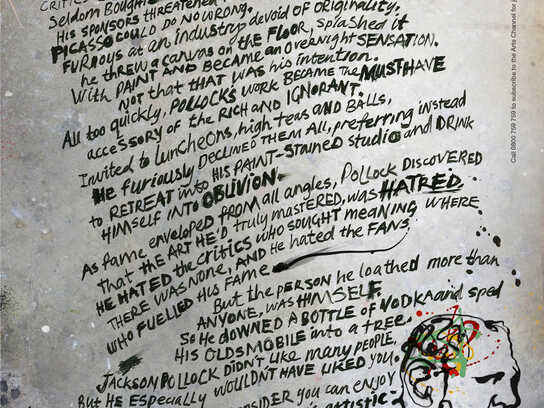 CRITICS
Seldom Bought
HIS SPONSORS THREATENED
PICASSO COULD DO NO WRONG.
FURIOUS at an industry devoid of ORIGINALITY,
he threw a canvas on the FLOOR, splashed it
With PAINT AND BECAME an OVERNIGHT SENSATION.
Not that THAT WAS his intention.
All too quickly, POLLOCK'S work BECAME The MUST HAVE
accessory of the RICH AND IGNORANT.
Invited to luncheons, high teas AND BALLS,
He furiously DECLINED THEM ALL, preferring instead
to RETREAT into HIS PAINT-STAINED studio and DRINK
HIMSELF INTO OBLIVION.
As fame enveloped FROM all angles, POLLOCK DISCOVERED
that THE ART HE'D truly mastered, was HATRED.
HE HATED the CRITICS WHO SOUGHT MEANING WHERE
THERE WAS NONE, AND He hated the FANS
WHO FUELLED His FAME
But the PERSON he loathed more than
ANYONE, WAS HIMSELF.
So He DOWNED A BOTTLE of VODKA and sped
HIS OLDSMOBILE into a TREE.
JACKSON POLLOCK DIDN'T LIKE many PEOPLE,
But HE Especially WOULDN'T HAVE LIKED YOU.
you can ENJOY
artistic
Call 0800 759 759 to subscribe to the Arts Channel for